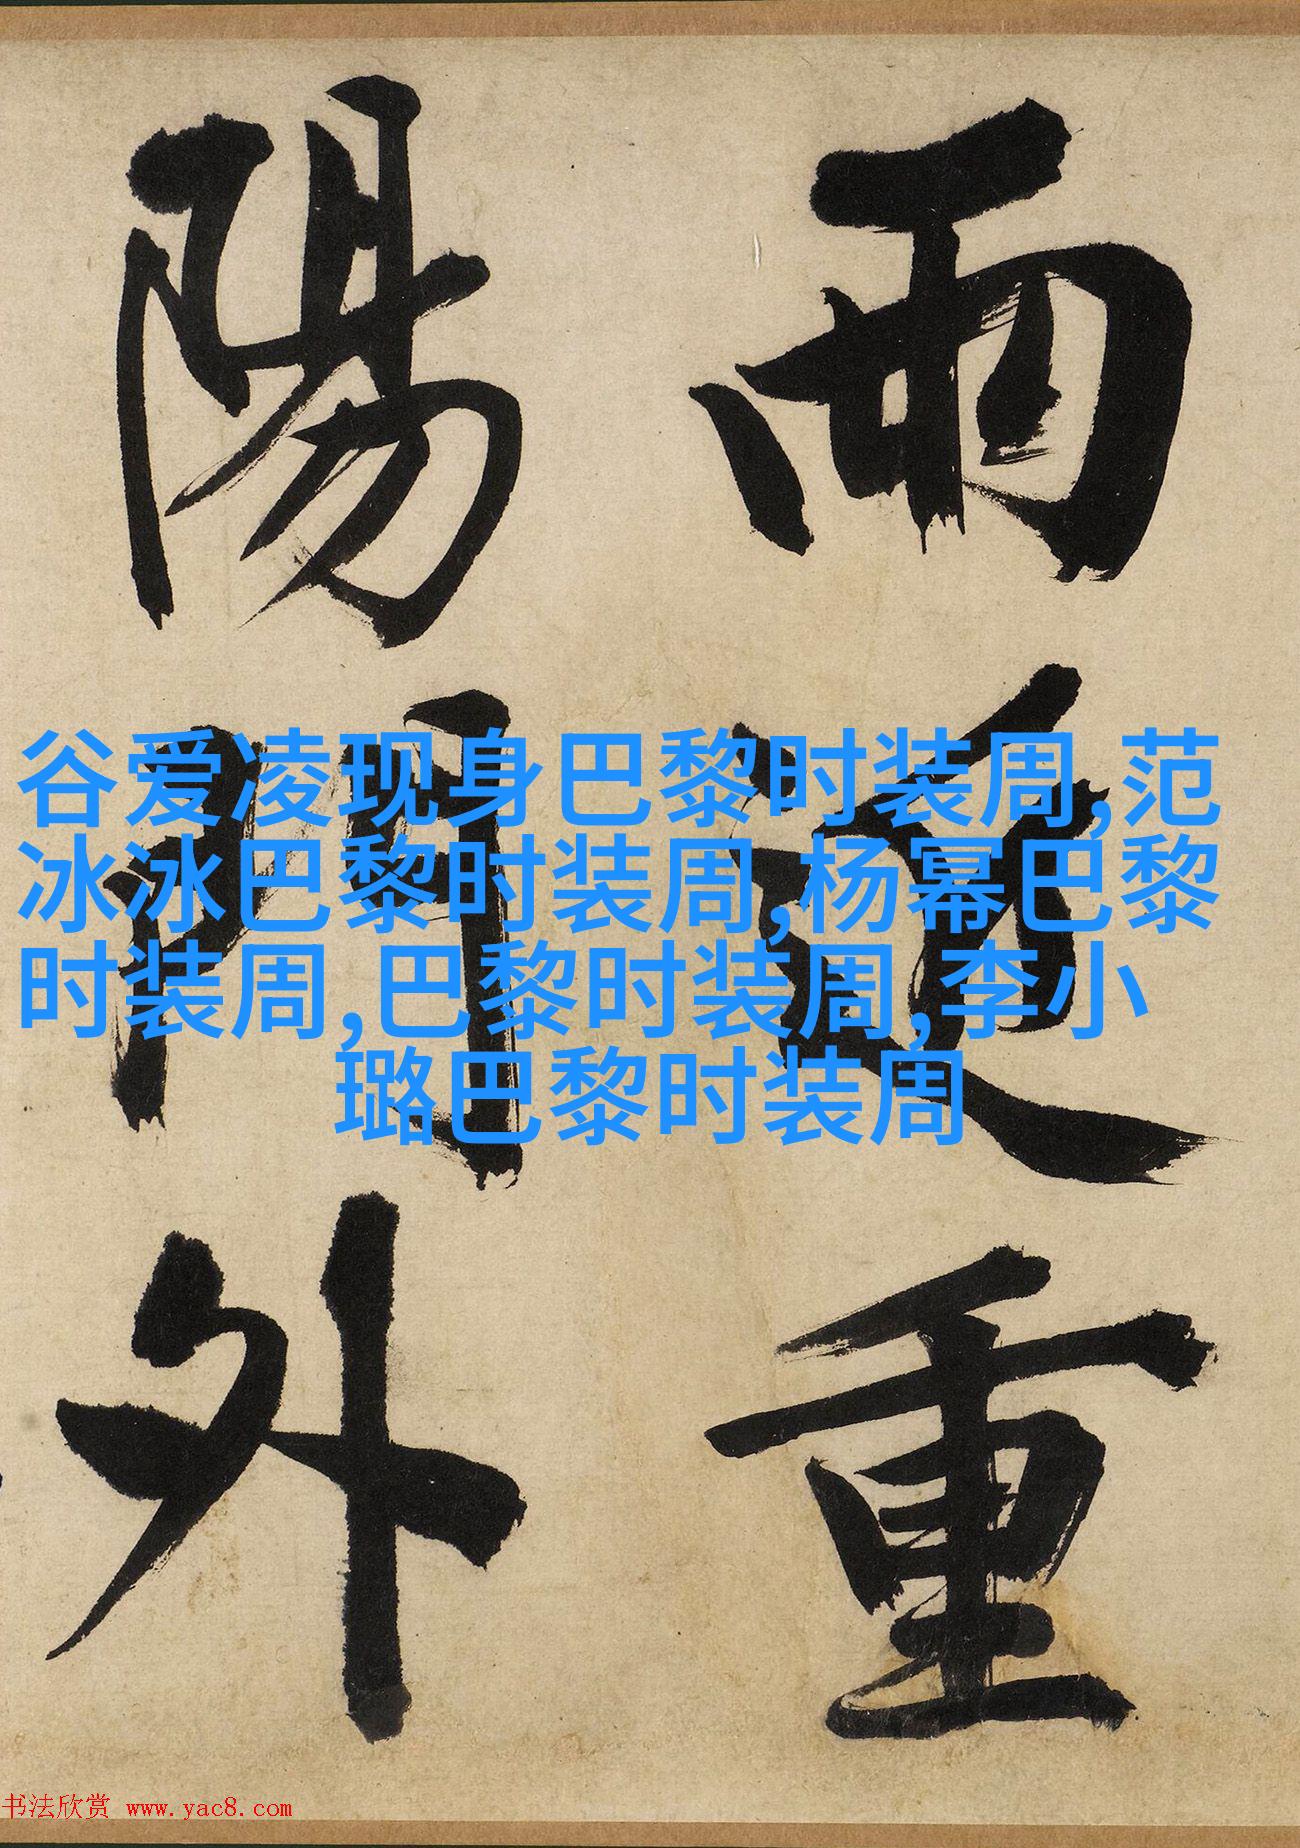 雨重
陽門外
谷爱凌现身巴黎时装周,范
冰冰巴黎时装周,杨幂巴黎
时装周,巴黎时装周,李小
璐巴黎时装周
书法欣赏 www.yac8.com